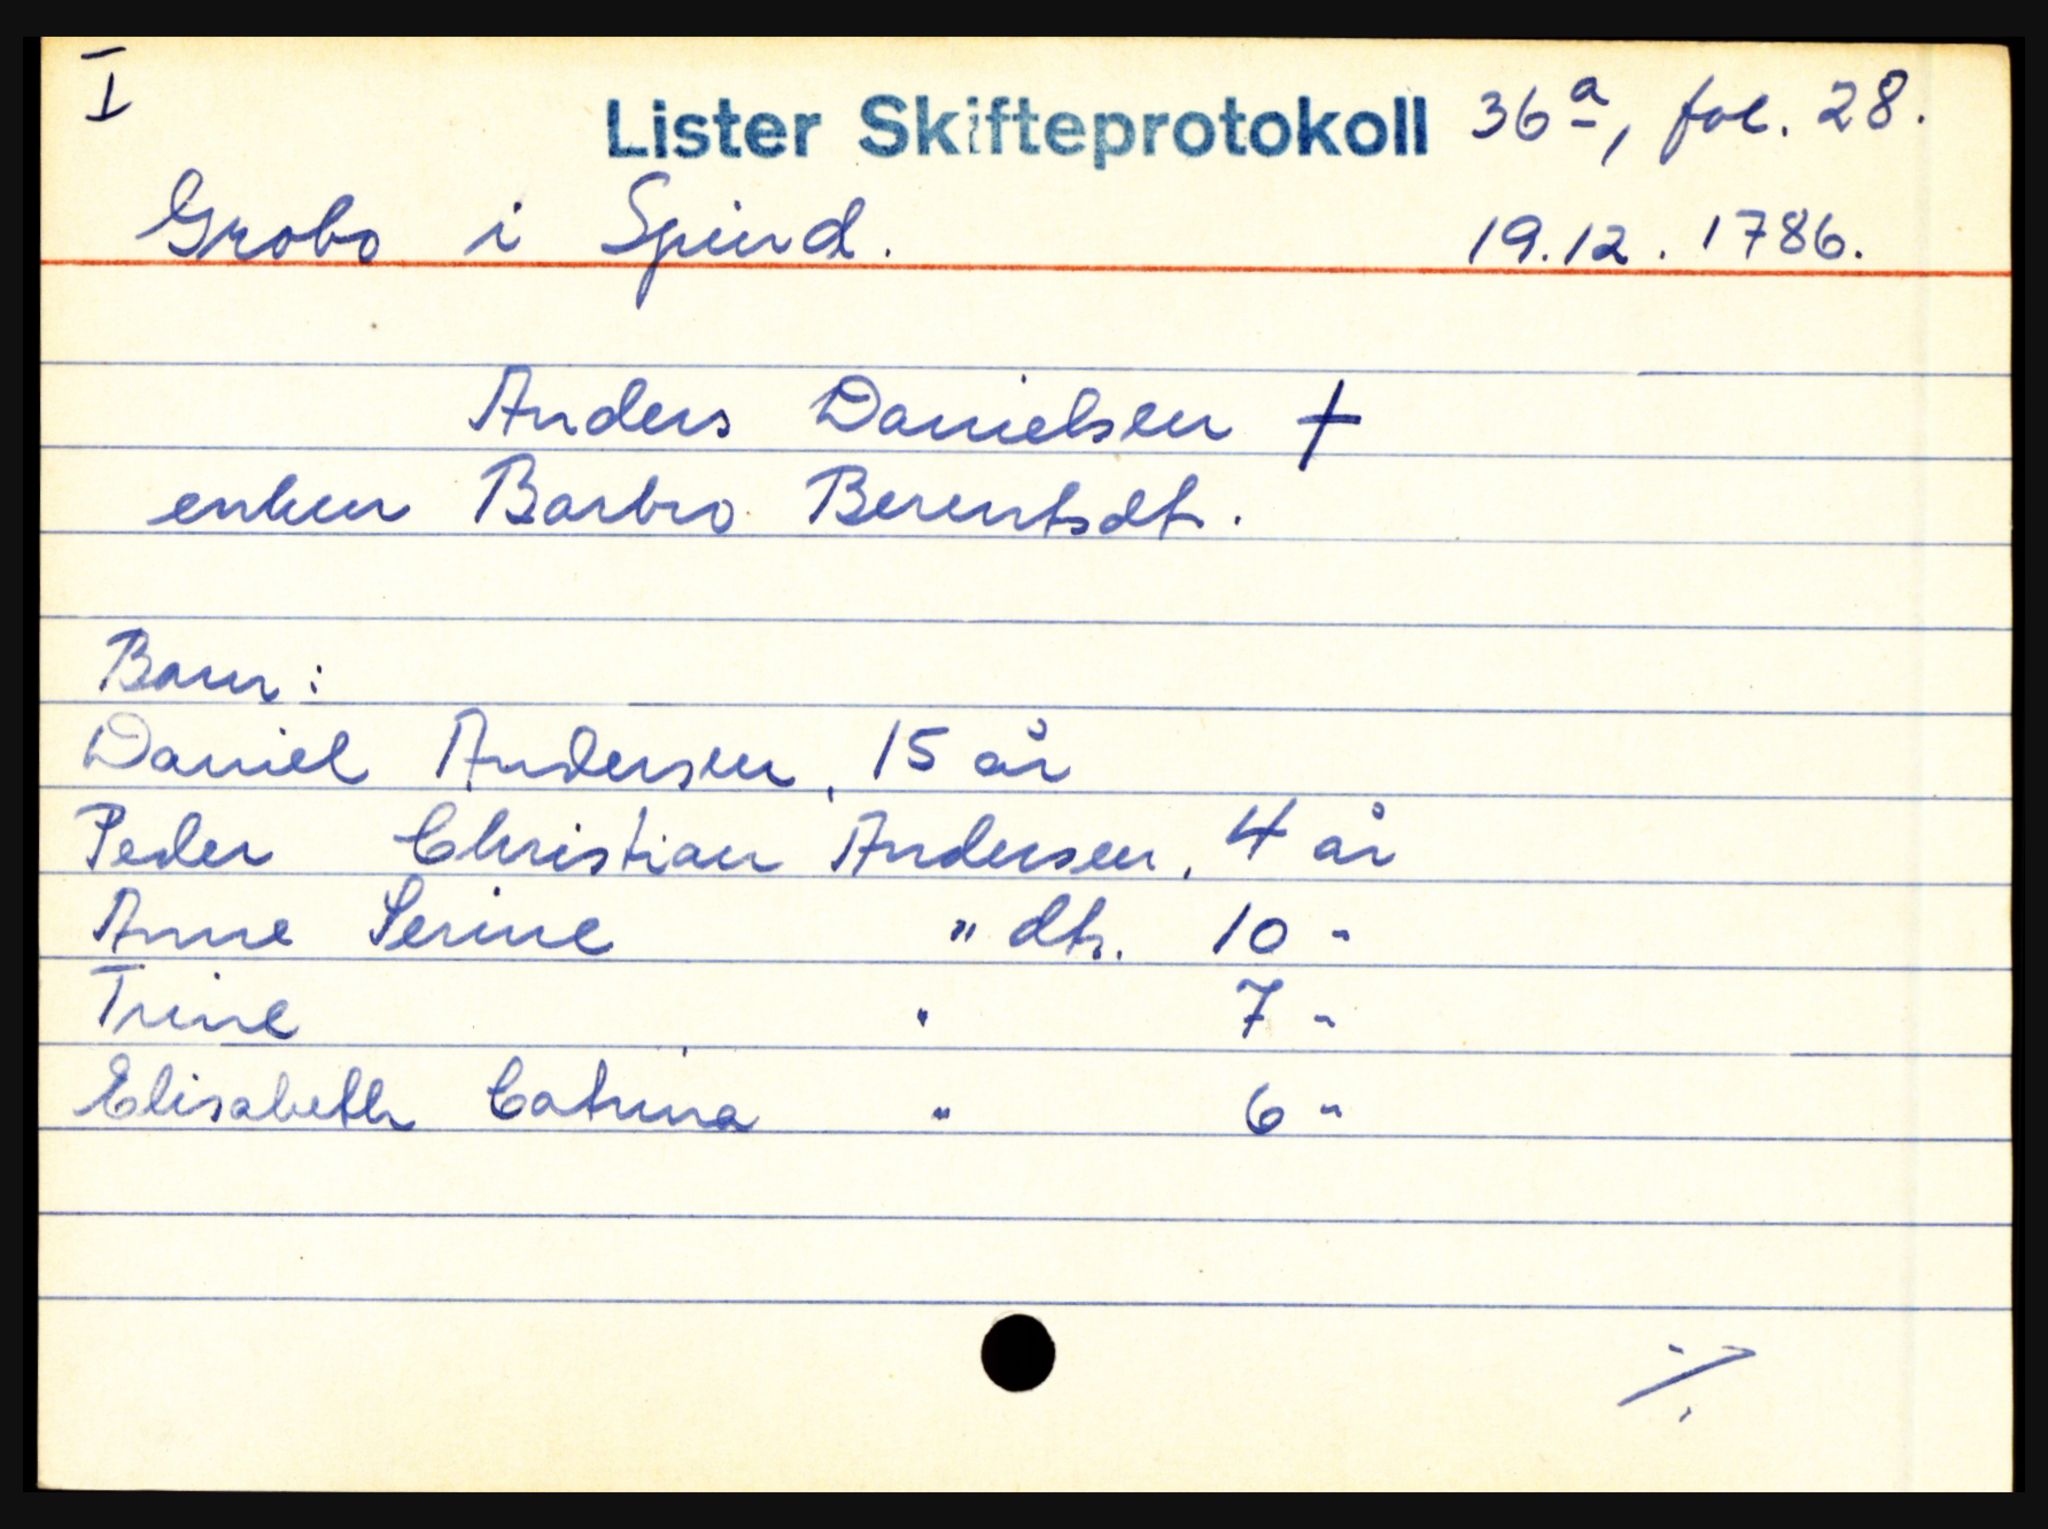 I
Lister Skifteprotokoll 36a, fol. 28.
Grobo i Spind. 19.12. 1786.
Anders Danielsen †
enken Barbro Berentsdtr.
Barn:
Daniel Andersen, 15 år
Peder Christian Andersen, 4 år
Anne Serine " dtr. 10 "
Trine " 7 "
Elisabeth Catrina " 6 "
./.